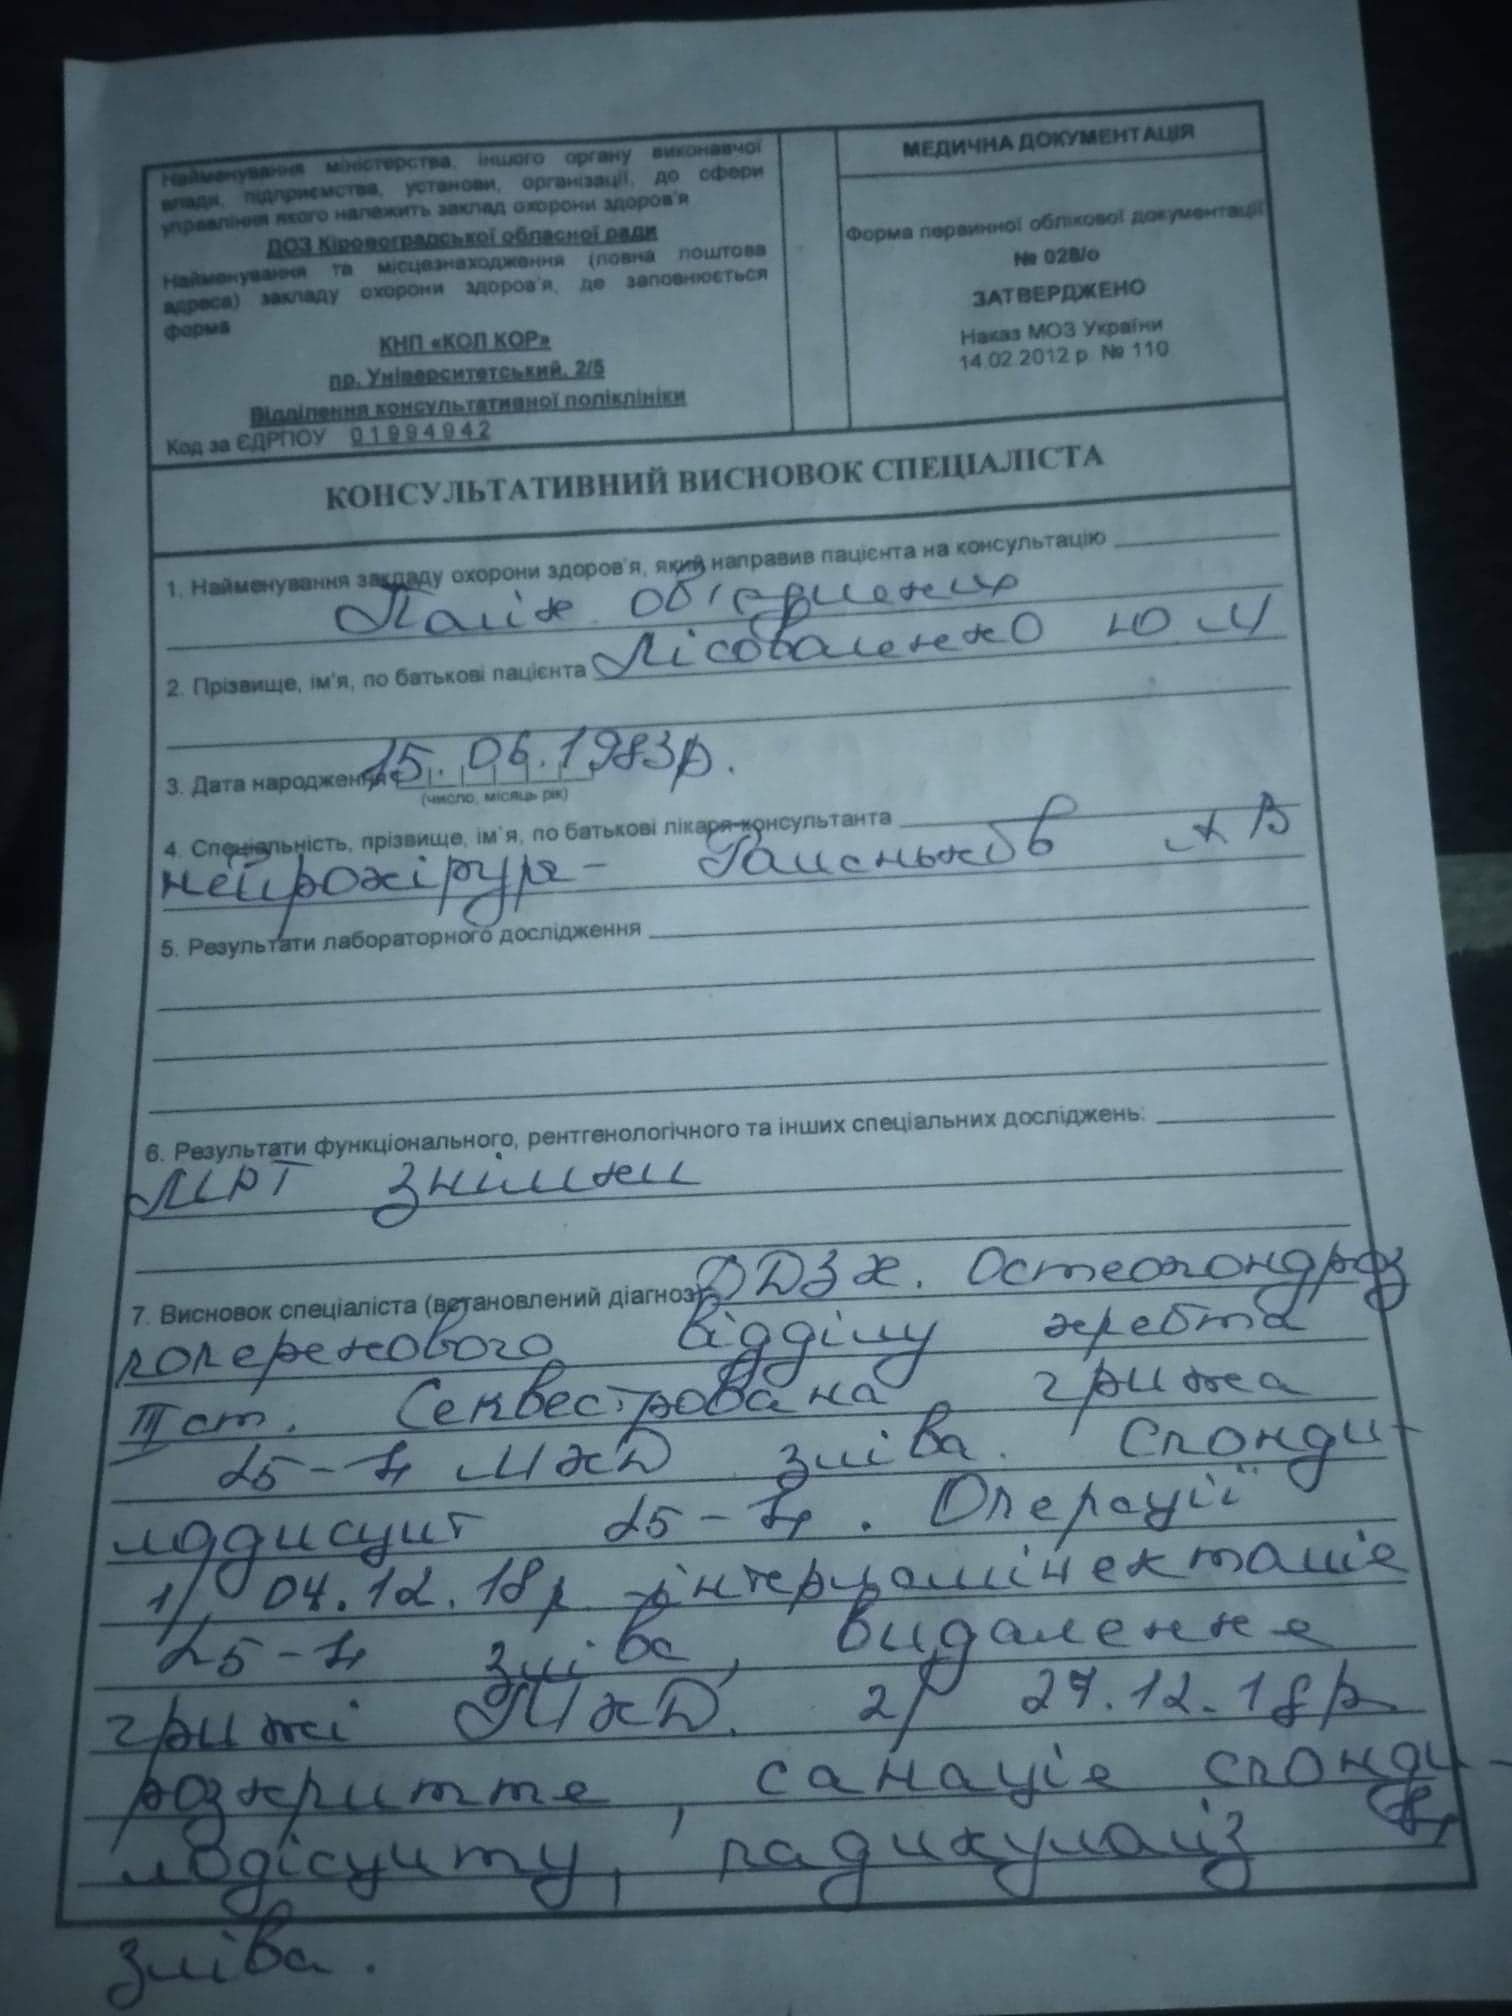 Найменування міністерства, іншого органу виконавчої
влади, підприємства, установи, організації, до сфери
управління якого належить заклад охорони здоров'я
ДОЗ Кіровоградської обласної ради
Найменування та місцезнаходження (повна поштова
адреса) закладу охорони здоров'я, де заповнюється
форма
КНП «КОЛ КОР»
пр. Університетський, 2/5
Відділення консультативної поліклініки
Код за ЄДРПОУ 01994942
МЕДИЧНА ДОКУМЕНТАЦІЯ
Форма первинної облікової документації
№ 028/о
ЗАТВЕРДЖЕНО
Наказ МОЗ України
14.02.2012 р. № 110
КОНСУЛЬТАТИВНИЙ ВИСНОВОК СПЕЦІАЛІСТА
1. Найменування закладу охорони здоров'я, який направив пацієнта на консультацію
2. Прізвище, ім'я, по батькові пацієнта Лісоваленко Ю М
3. Дата народження 15.06.1983р.
(число, місяць рік)
4. Спеціальність, прізвище, ім'я, по батькові лікаря-консультанта
нейрохірург -
5. Результати лабораторного дослідження
6. Результати функціонального, рентгенологічного та інших спеціальних досліджень:
МРТ знімки
7. Висновок спеціаліста (встановлений діагноз) ДДЗХ. Остеохондроз
поперекового відділу хребта
III ст. Секвестрована грижа
L5-S1 МХД зліва. Спонди-
лодисцит L5-S1. Операції
1/ 04.12.18р. інтерламінектомія
L5-S1 зліва, видалення
грижі МХД. 2/ 27.12.18р.
розкриття, санація спонди-
лодісциту, радикуліз S1
зліва.